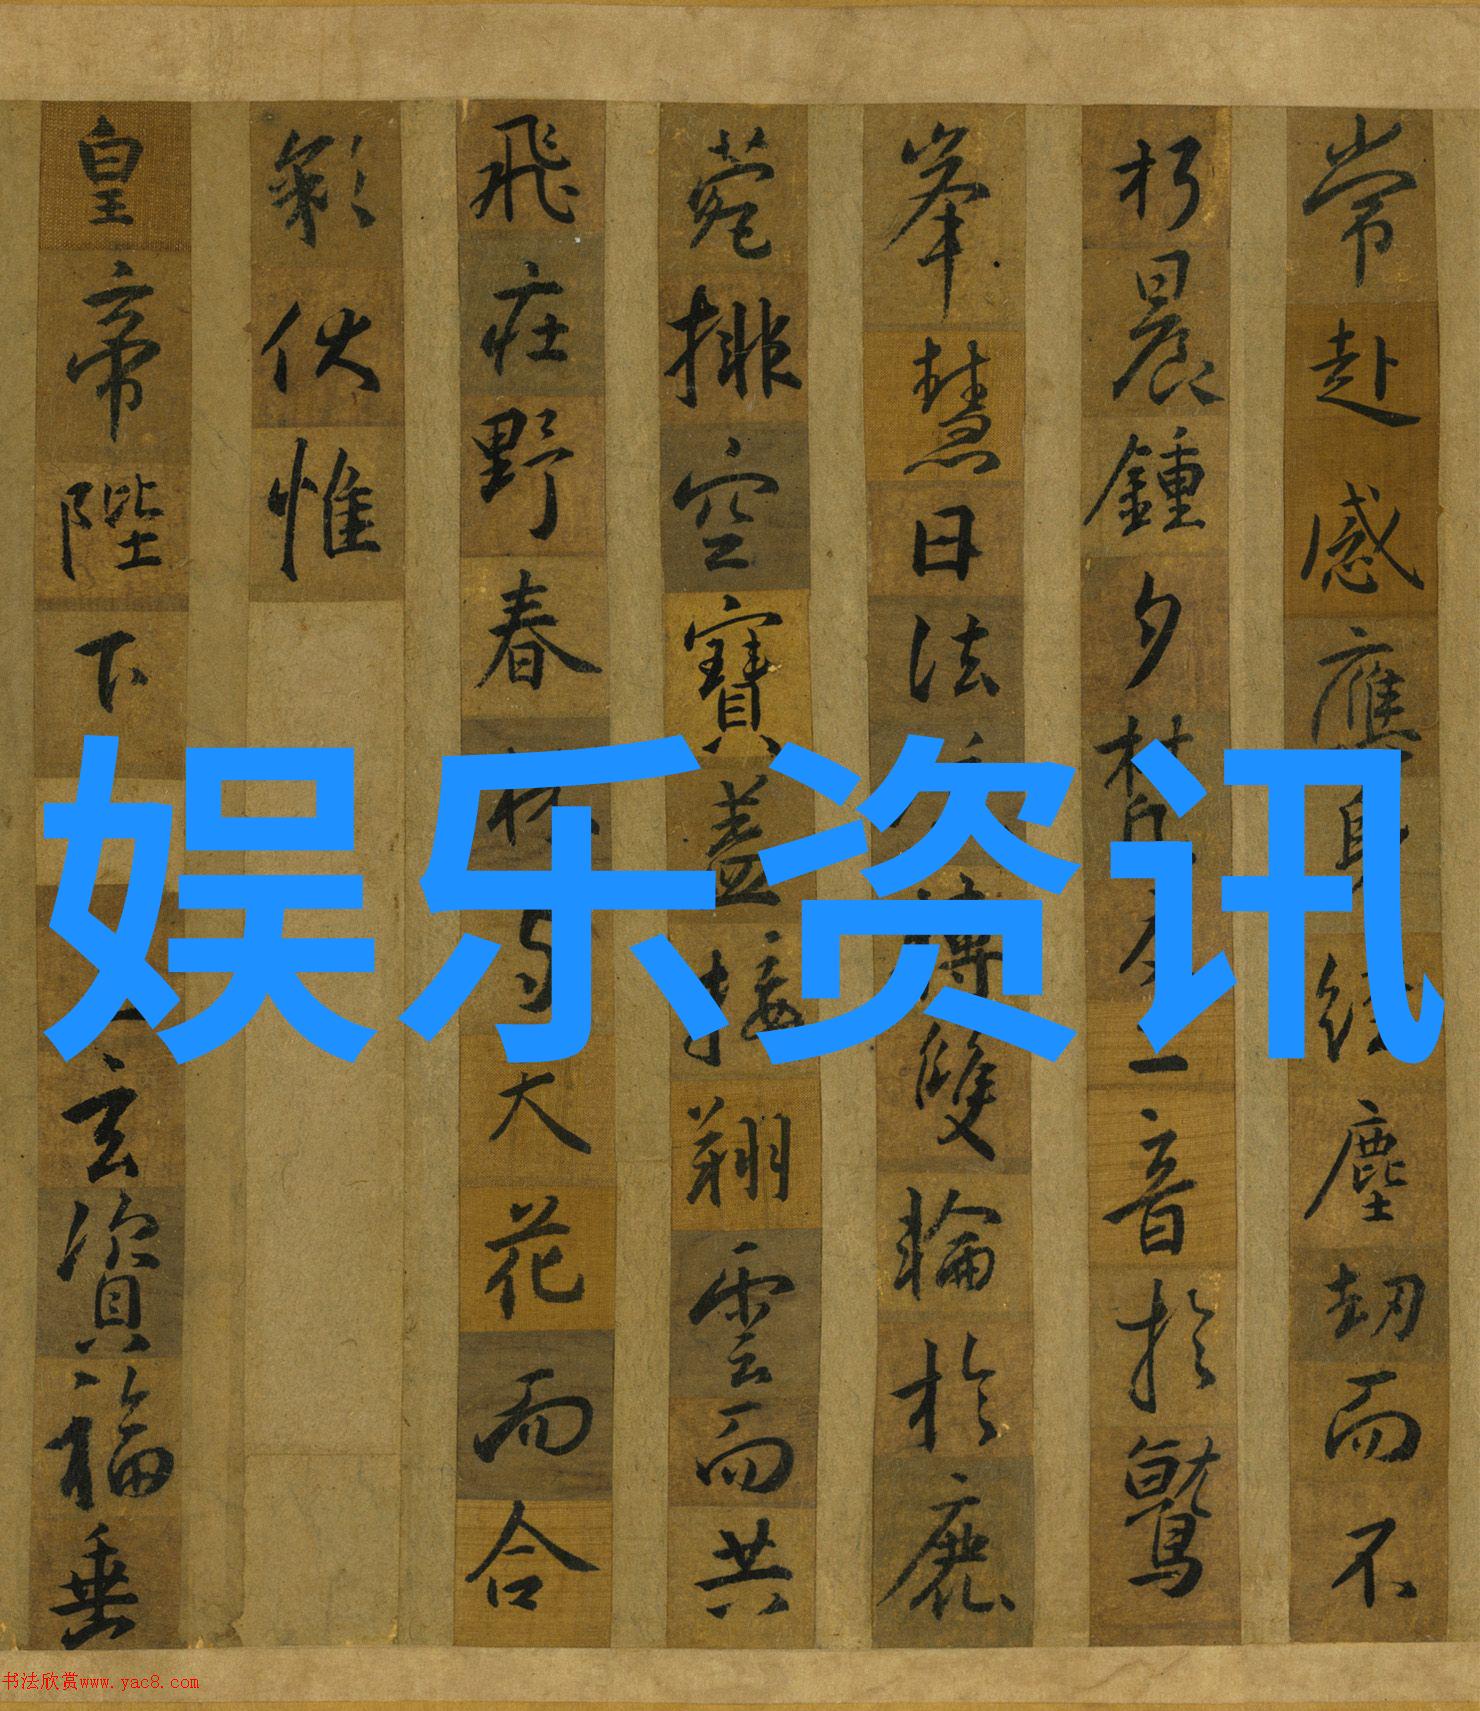 常赴感應身經塵劫而不
朽晨鍾夕梵音於鷲
峯慧日法轉雙輪於鹿
菀排空寶蓋接翔雲而共
飛莊野春林花而合
彩伏惟
皇帝陛下
玄資福垂
娱乐资讯
书法欣赏www.yac8.com